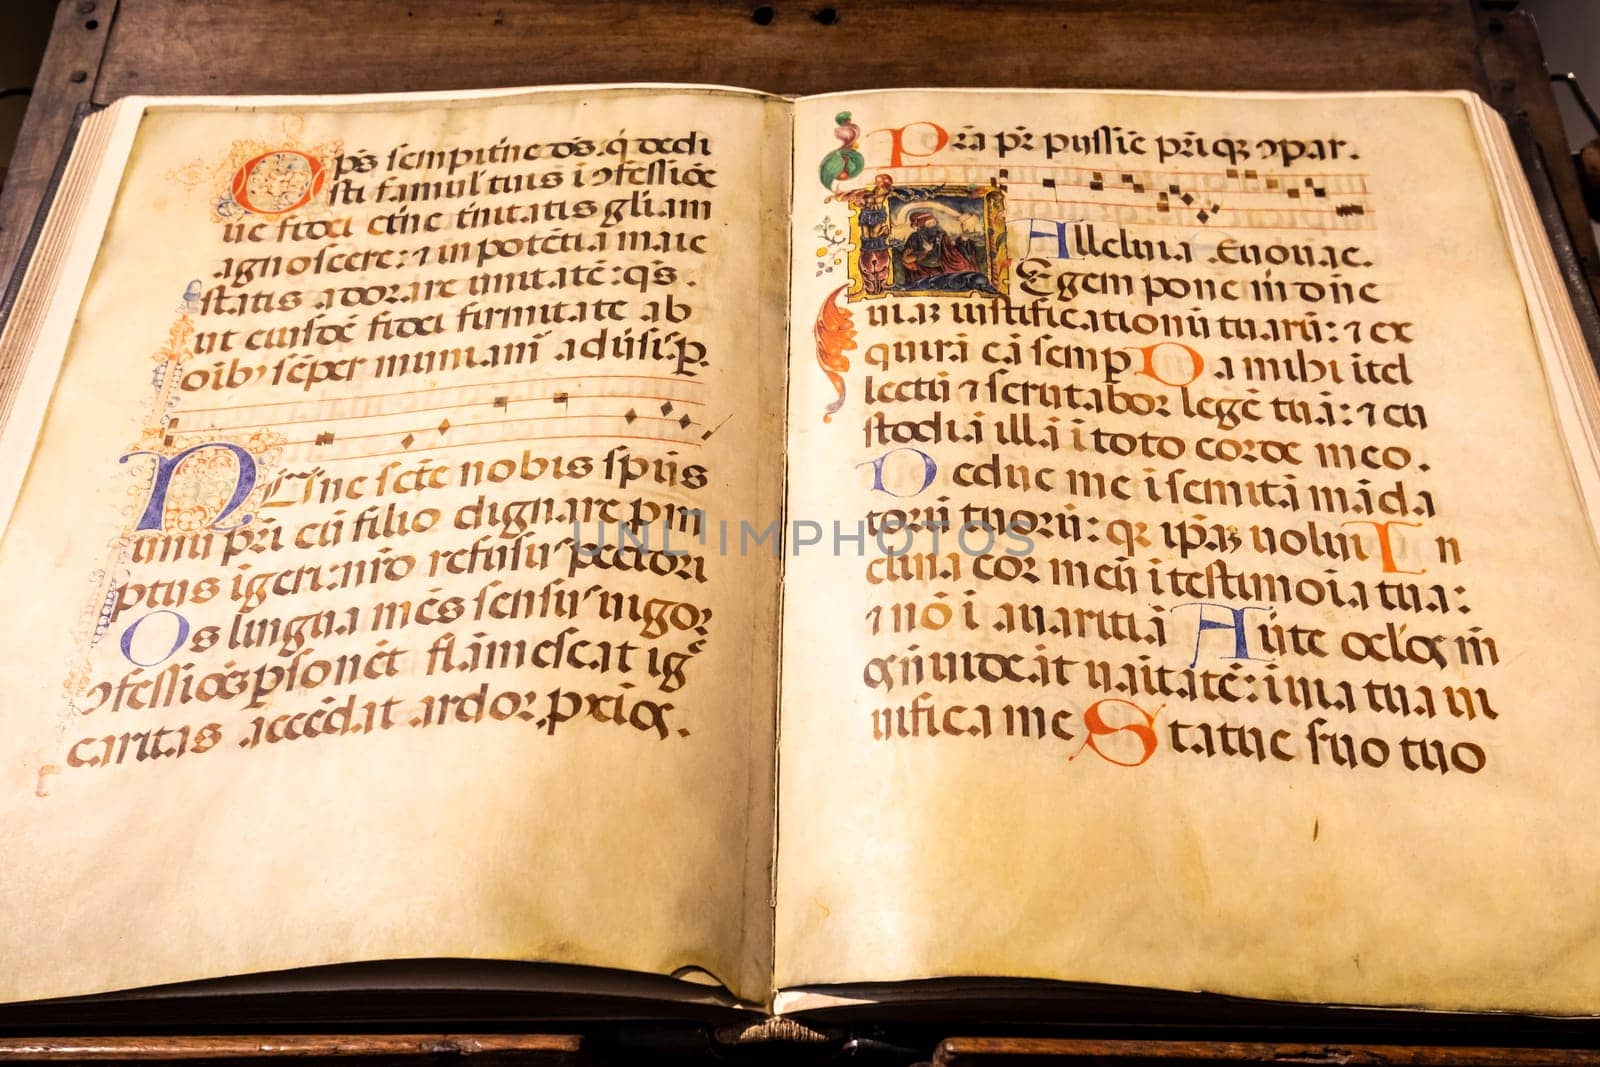 Op̄s sempit̄ne ds̄. q̇ dedi
sti famul' tuis i ɔfessiōe
ue fidei et̄ne t̄nitatis gl̄iam
agnoscere: ⁊ in potētia maie
statis adorare unitatē: qs̄.
ut eiusdē fidei firmitate ab
oib; sēper muniam̄ adūsis. p.
Nūc sc̄te nobis sp̄us
unū p̄ri cū filio dignare pm
ptus igeri: nr̄o refusus pectori
Os lingua mēs sensus uigor
ɔfessiōez psonēt flāmescat ig̃
caritas accēdat ardor pxios.
Prā pr̄ pijssiē pr̄iqz ɔpar.
Alleluia Euouae.
Legem pone m̄ dn̄e
uiaz iustificationū tuarū: ⁊ ex
quirā eā semp Da mihi itel
lectū ⁊ scrutabor legē tuā: ⁊ cu
stodiā illā i toto corde meo.
Deduc me i semitā māda
torū tuorū: qz ip̄az uolui In
clina cor meū i testimōia tua:
⁊ nō i auaritiā Aūte oc̄los m̄
os nē uideāt uaitatē: i uia tua ui
uifica me Statue suo tuo
UNLIMPHOTOS